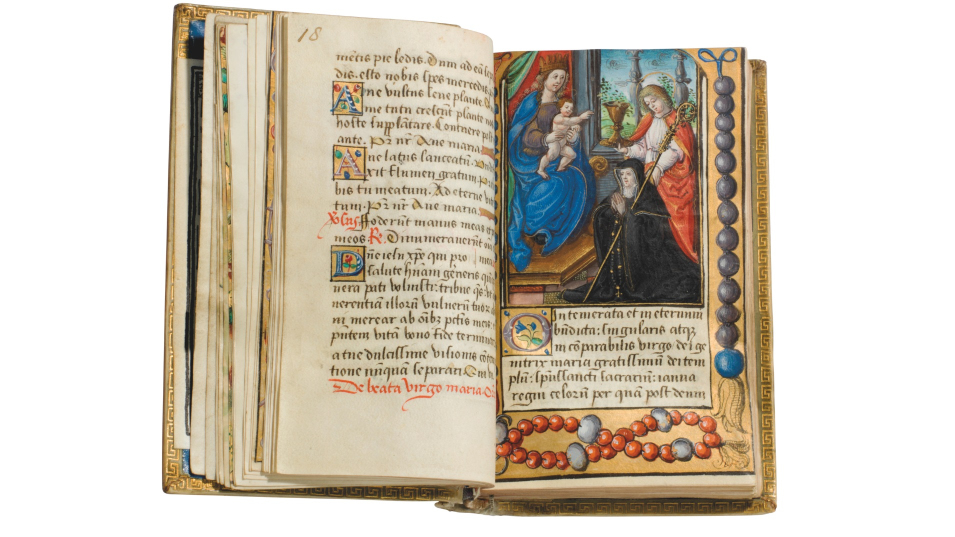 18
meris pie ledis. Dum ad ea
dis. esto nobis spes mercedis
Aue vultus bene plante.
me tutu crescut plante
hoste supplatare. Conterere
ante. Pr nr Aue maria.
Aue latus lanceatu.
exit flumen gratum.
bis tu meatum. Ad eterne
tum. Pr nr Aue maria.
foderut manus meas
meos. Re. Dinumeraverut
Dne iesu xpe qui pro
salute humani generis
vera pati voluisti: tribue qs:
nerentia illoru vulneru
ni merear ab oibz pctis
putem vita bono fide
atue dulcissime visionis
tione nunqua separari.
De beata virgo maria.
O intemerata et in eternum
bndicta: singularis atqz
incoparabilis virgo dei ge
nitrix maria gratissimu dei tem
plu: spussancti sacrariu: ianua
regni celoru per qua post deum